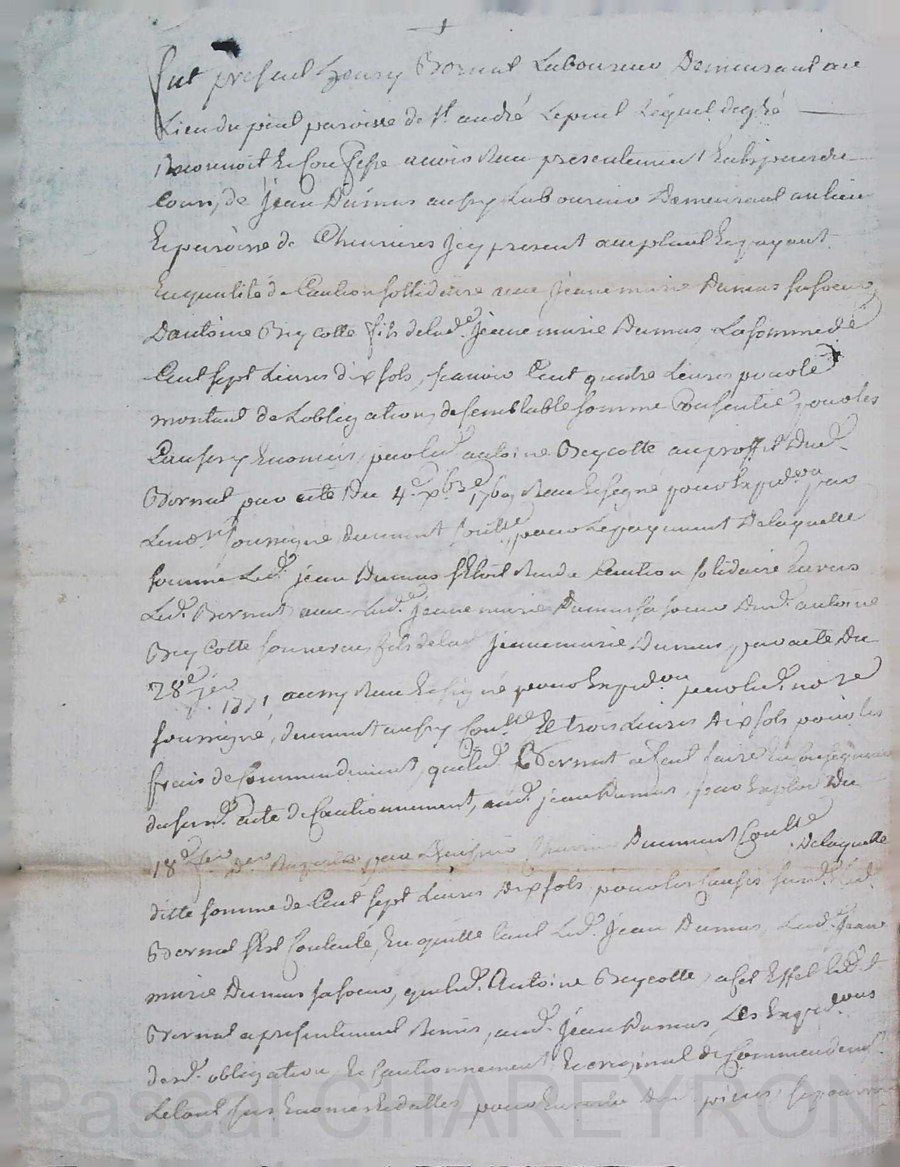 fut present Henry Bornat Laboureur Demeurant au
Lieu du pinl paroisse de St. andré Lequel de gré
Reconnoit Et Confesse avoir Reçu presentement
Cour, de Jean Dumas aussy Laboureur Demeurant au lieu
Et paroisse de Chenieres Jcy present acceptant Et payant
En qualité de Caution sollidaire avec Jeanne marie Dumas sa soeur,
D'antoine Beycotte fils de lad.e Jeanne marie Dumas La somme de
Cent sept Livres dix sols, scavoir Cent quatre Livres pour le
montant de Lobligation, de semblable somme Consentie, pour les
Causes y Enoncées, par led.t antoine Beycotte au proffit dud.t
Bornat par acte Du 4.e xbre 1769 Recu Et signé pour Expédon par
Le no.re soussigné dument Collé, pour Le payement De laquelle
somme Led. jean Dumas s'Etoit Rendu Caution solidaire Envers
Led. Bornat, avec Lad.e Jeanne marie Dumas sa soeur Dud. antoine
Beycotte son neveu fils de lad Jeanne marie Dumas, par acte Du
28.e 1771 aussy Recu Et signé pour Expédon par led. no.re
soussigné, dument aussy Collé Et trois Livres Dix sols pour les
frais de Commandement, que led. Bornat a fait faire En Consequence
du surd. acte de Cautionnement, aud. jean Dumas, par Exploit Du
18.e Dument Collé De laquelle
ditte somme de Cent sept Livres Dix sols pour les Causes surd. led.
Bornat s'Est Contenté, En quitte tant Led. Jean Dumas, Lad. Jeanne
marie Dumas sa soeur, que led. Antoine Beycotte, a Cet Effet led.t
Bornat a presentement Remis, aud. Jean Dumas, Les Expédons
desd. obligation, Et Cautionnement Et original de Commandemt.
Le tout sus Enoncés Et dattés, pour En vertu Des pieces
Pascal CHAREYRON